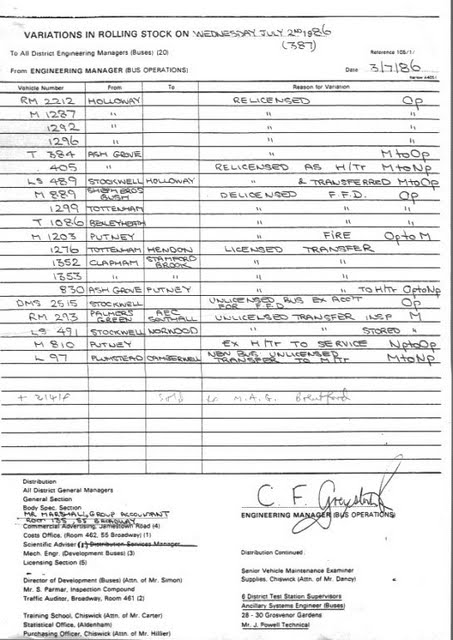 VARIATIONS IN ROLLING STOCK ON WEDNESDAY JULY 2ND 1986
(387)
To All District Engineering Managers (Buses) (20)
Reference 105/1/
From ENGINEERING MANAGER (BUS OPERATIONS)
Date 3/7/86
Vehicle Number From To Reason for Variation
RM 2212 HOLLOWAY RELICENSED Op
M 1237 " " "
1292 " " "
1296 " " "
T 384 ASH GROVE " M to Op
405 " RELICENSED AS H/Tr M to Np
LS 489 STOCKWELL HOLLOWAY " & TRANSFERRED M to Op
M 889 SHEPHERDS BUSH DELICENSED F.F.D. Op
1299 TOTTENHAM " " "
T 1086 BEXLEYHEATH " " "
M 1203 PUTNEY " FIRE Op to M
1276 TOTTENHAM HENDON LICENSED TRANSFER
1352 CLAPHAM STAMFORD BROOK " "
1353 " " " "
830 ASH GROVE PUTNEY " " TO H/Tr Op to Np
DMS 2515 STOCKWELL UNLICENSED BUS EX ACC'T FOR F.F.D Op
RM 293 PALMERS GREEN AEC SOUTHALL UNLICENSED TRANSFER INSP M
LS 491 STOCKWELL NORWOOD " " STORED "
M 810 PUTNEY EX H/Tr TO SERVICE Np to Op
L 97 PLUMSTEAD CAMBERWELL NEW BUS UNLICENSED TRANSFER TO H/Tr M to Np
Sold to M.A.S. Brentford
Distribution
All District General Managers
General Section
Body Spec. Section
MR MARSHALL, GROUP ACCOUNTANT
ROOM 135, 55 BROADWAY
Commercial Advertising, Jamestown Road (4)
Costs Office. (Room 462, 55 Broadway) (1)
Scientific Adviser Distribution Services Manager
Mech. Engr. (Development Buses) (3)
Licensing Section (5)
Director of Development (Buses) (Attn. of Mr. Simon)
Mr. S. Parmar, Inspection Compound
Traffic Auditor, Broadway, Room 461 (2)
Training School, Chiswick (Attn. of Mr. Carter)
Statistical Office, (Aldenham)
Purchasing Officer, Chiswick (Attn. of Mr. Hillier)
C. F.
ENGINEERING MANAGER (BUS OPERATIONS)
Distribution Continued
Senior Vehicle Maintenance Examiner
Supplies, Chiswick (Attn. of Mr. Dancy)
6 District Test Station Supervisors
Ancillary Systems Engineer (Buses)
28 - 30 Grosvenor Gardens
Mr. J. Powell Technical